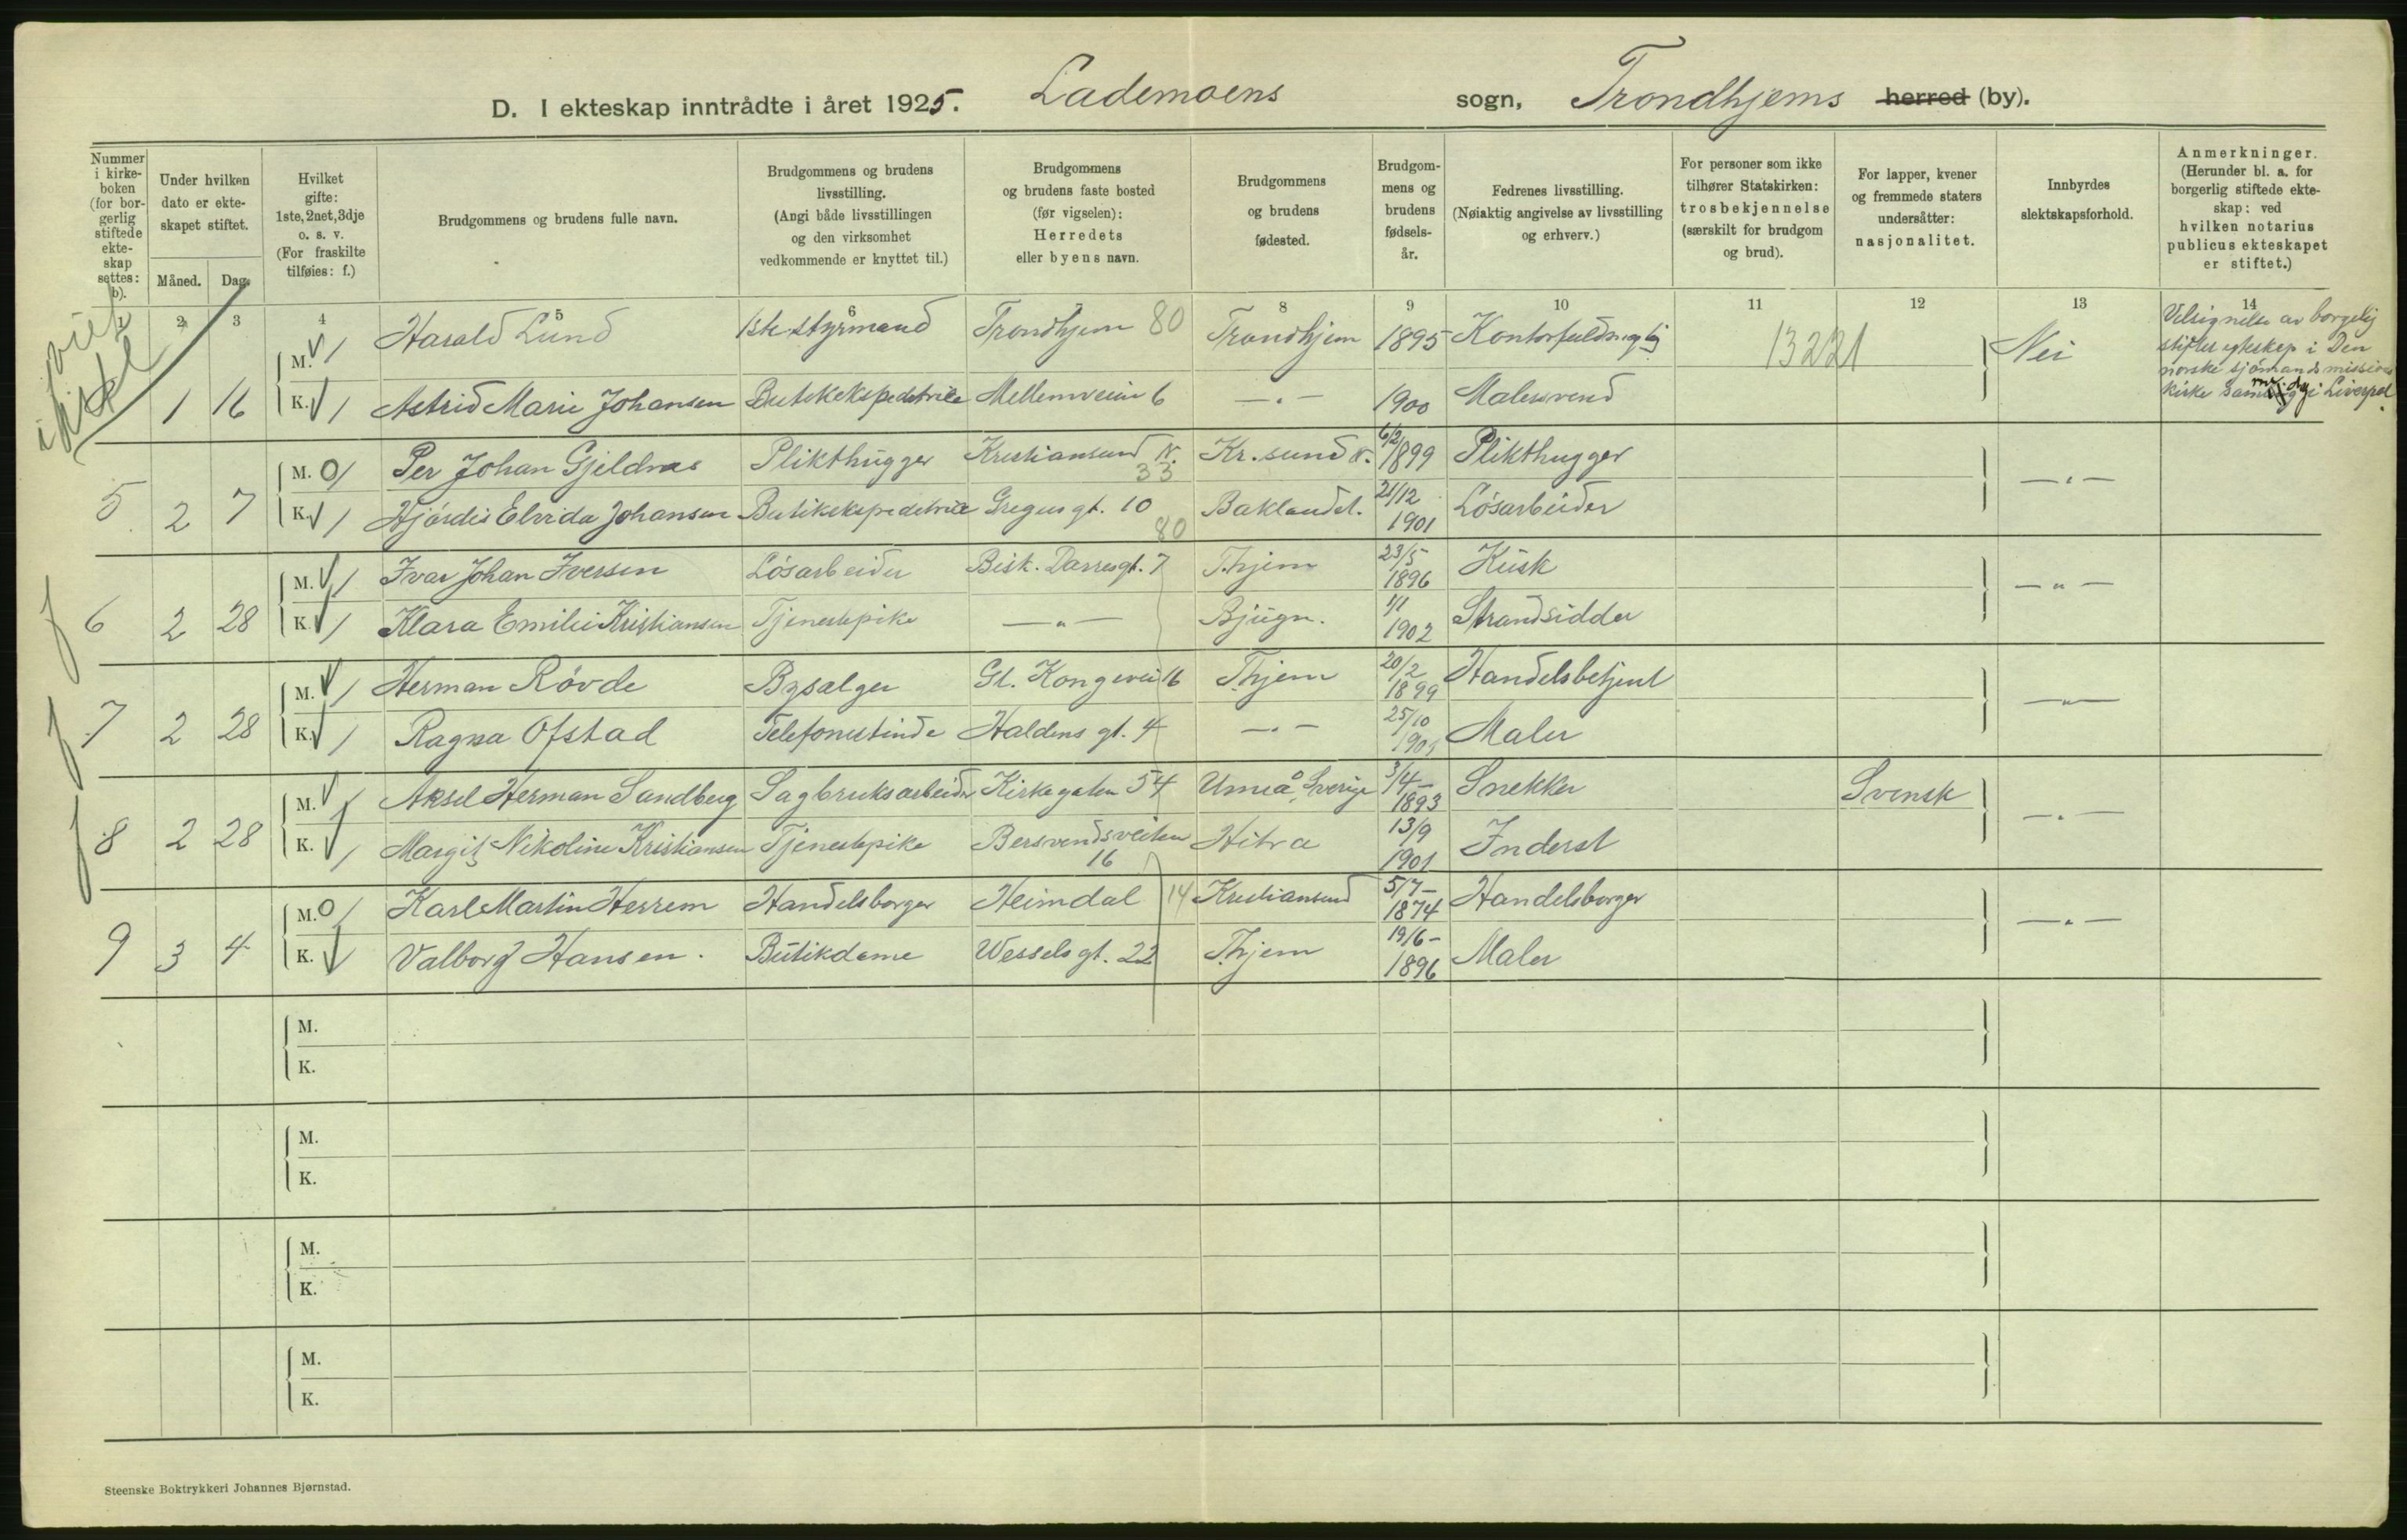 D. I ekteskap inntrådte i året 1925. Lademoens sogn, Trondhjems herred (by).
Nummer i kirkeboken (for borgerlig stiftede ekteskap settes: b).
Under hvilken dato er ekteskapet stiftet.
Måned. Dag.
Hvilket gifte: 1ste, 2net, 3dje o. s. v. (For fraskilte tilføies: f.)
Brudgommens og brudens fulle navn.
Brudgommens og brudens livsstilling. (Angi både livsstillingen og den virksomhet vedkommende er knyttet til.)
Brudgommens og brudens faste bosted (før vigselen): Herredets eller byens navn.
Brudgommens og brudens fødested.
Brudgommens og brudens fødselsår.
Fedrenes livsstilling. (Nøiaktig angivelse av livsstilling og erhverv.)
For personer som ikke tilhører Statskirken: trosbekjennelse (særskilt for brudgom og brud).
For lapper, kvener og fremmede staters undersåtter: nasjonalitet.
Innbyrdes slektskapsforhold.
Anmerkninger. (Herunder bl. a. for borgerlig stiftede ekteskap: ved hvilken notarius publicus ekteskapet er stiftet.)
1 2 3 4 5 6 8 9 10 11 12 13 14
M. 1 Harald Lund 1ste styrmand Trondhjem 80 Trondhjem 1895 Kontorfuldmegtig 13221 Nei
Velsignelse av borgelig
stiftet egteskap i Den
norske sjømandsmissions
kirke samme dag i Liverpol
1 16 K. 1 Astrid Marie Johansen Butikekspeditrice Mellemveien 6 —„— 1900 Malersvend
M. O 1 Per Johan Gjeldnes Plikthugger Kristiansund N. 33 Kr.sund N. 6/2 1899 Plikthugger —„—
5 2 7 K. 1 Hjördis Elvida Johansen Butikekspeditrice Gregusgt. 10 80 Baklandet. 21/12 1901 Lösarbeider
M. 1 Ivar Johan Iversen Lösarbeider Bisk. Darresgt. 7 T.hjem 23/5 1896 Kusk —„—
6 2 28 K. 1 Klara Emilie Kristiansen Tjenestepike —„— Bjugn. 1/1 1902 Strandsidder
M. 1 Herman Rövde Bysælger Gl. Kongevei 16 T.hjem 20/2 1899 Handelsbetjent —„—
7 2 28 K. 1 Ragna Ofstad Telefonistinde Haldens gt. 4 —„— 25/10 1901 Maler
M. 1 Aksel Herman Sandberg Sagbruksarbeider Kirkegaten 54 Umeå, Sverige 3/4 1893 Snekker Svensk —„—
8 2 28 K. 1 Margit Nikoline Kristiansen Tjenestepike Bersvendsveiten 16 Hitra 13/9 1901 Inderst
M. O 1 Karl Martin Herrem Handelsborger Heimdal 14 Kristiansund 5/7 1874 Handelsborger —„—
9 3 4 K. Valborg Hansen. Butikdame Wesselsgt. 22 T.hjem 19/6 1896 Maler
M.
K.
M.
K.
M.
K.
M.
K.
Steenske Boktrykkeri Johannes Bjørnstad.